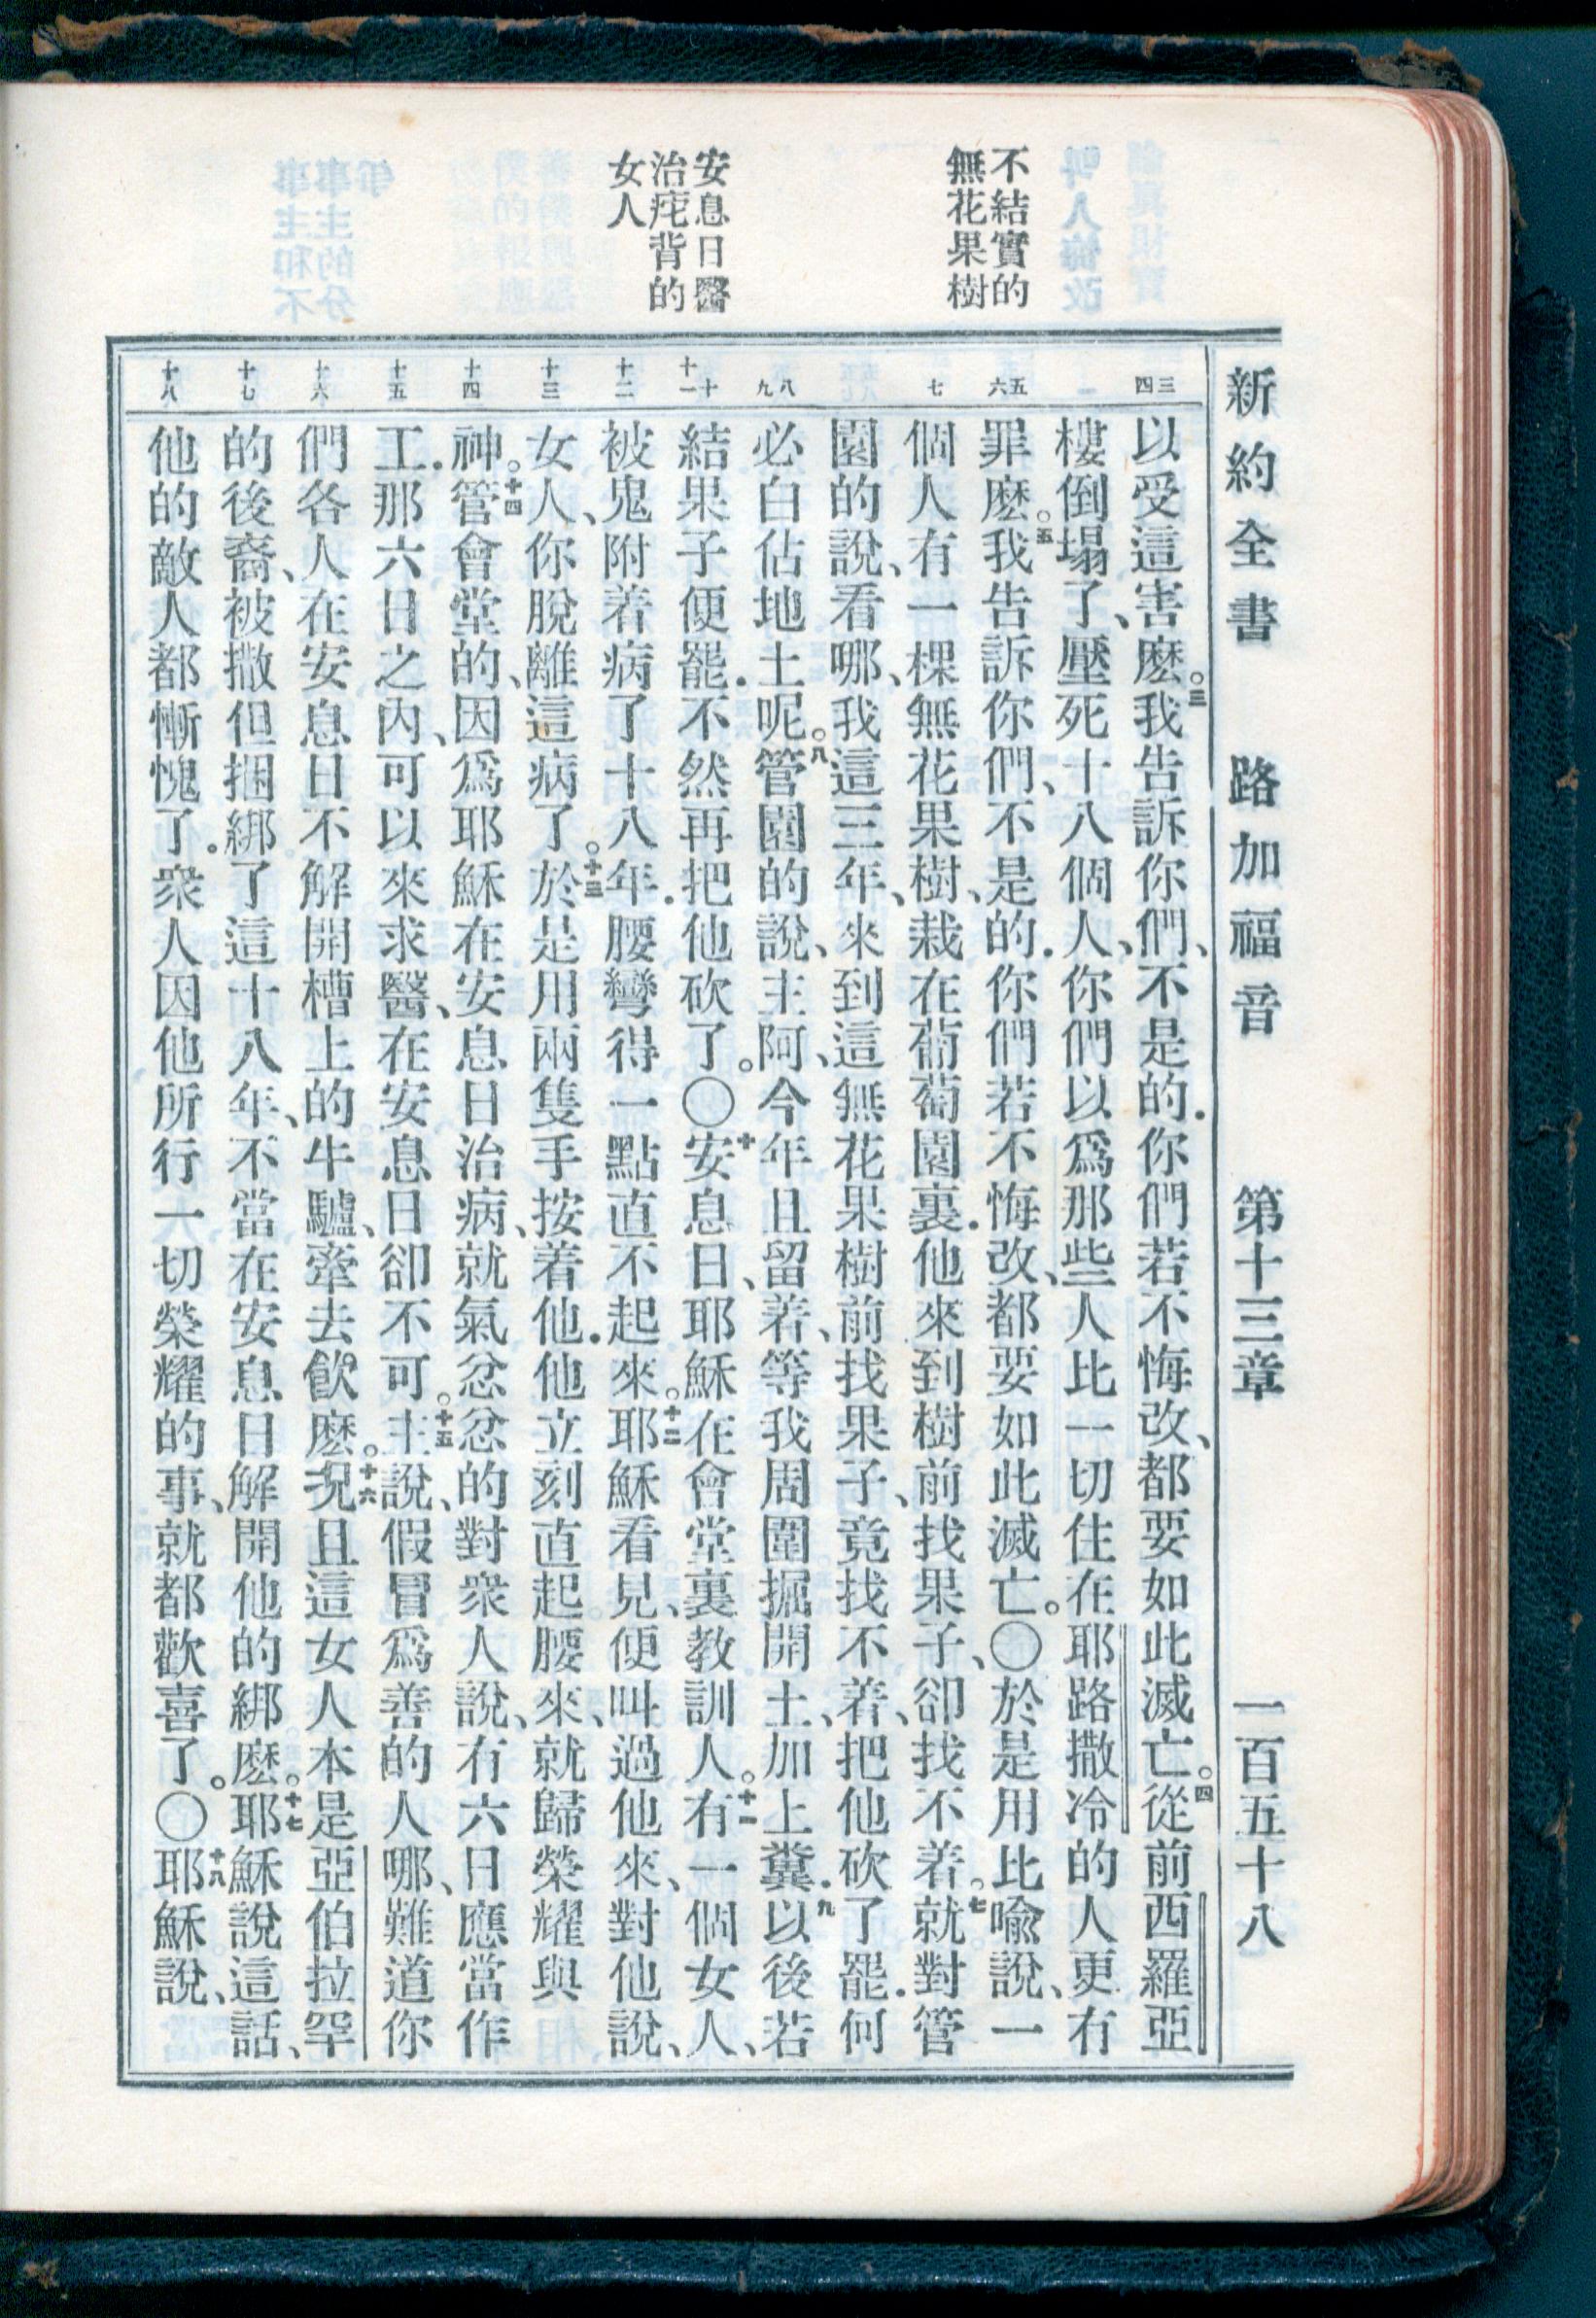 新約全書 路加福音 第十三章 一百五十八
不結實的
無花果樹
安息日醫
治疴背的
女人
三 四
五 六
七
八 九
十 十一
十二
十三
十四
十五
十六
十七
十八
以受這害麽。三我告訴你們、不是的．你們若不悔改、都要如此滅亡。四從前西羅亞
樓倒塌了、壓死十八個人、你們以爲那些人比一切住在耶路撒冷的人更有
罪麽。五我告訴你們、不是的．你們若不悔改、都要如此滅亡。〇於是用比喩說、一
個人有一棵無花果樹、栽在葡萄園裏．他來到樹前找果子、卻找不着。七就對管
園的說、看哪、我這三年、來到這無花果樹前找果子、竟找不着、把他砍了罷．何
必白佔地土呢。八管園的說、主阿、今年且留着、等我周圍掘開土、加上糞．九以後若
結果子便罷．不然再把他砍了。〇十安息日、耶穌在會堂裏教訓人。十一有一個女人、
被鬼附着病了十八年．腰彎得一點直不起來。十二耶穌看見、便叫過他來、對他說、
女人、你脫離這病了。十三於是用兩隻手按着他．他立刻直起腰來、就歸榮耀與
神。十四管會堂的、因爲耶穌在安息日治病、就氣忿忿的對衆人說、有六日應當作
工．那六日之內、可以來求醫、在安息日卻不可。十五主說、假冒爲善的人哪、難道你
們各人在安息日不解開槽上的牛驢、牽去飮麽。十六况且這女人本是亞伯拉罕
的後裔、被撒但捆綁了這十八年、不當在安息日解開他的綁麽。十七耶穌說這話、
他的敵人都慚愧了。衆人因他所行一切榮耀的事、就都歡喜了。〇十八耶穌說、